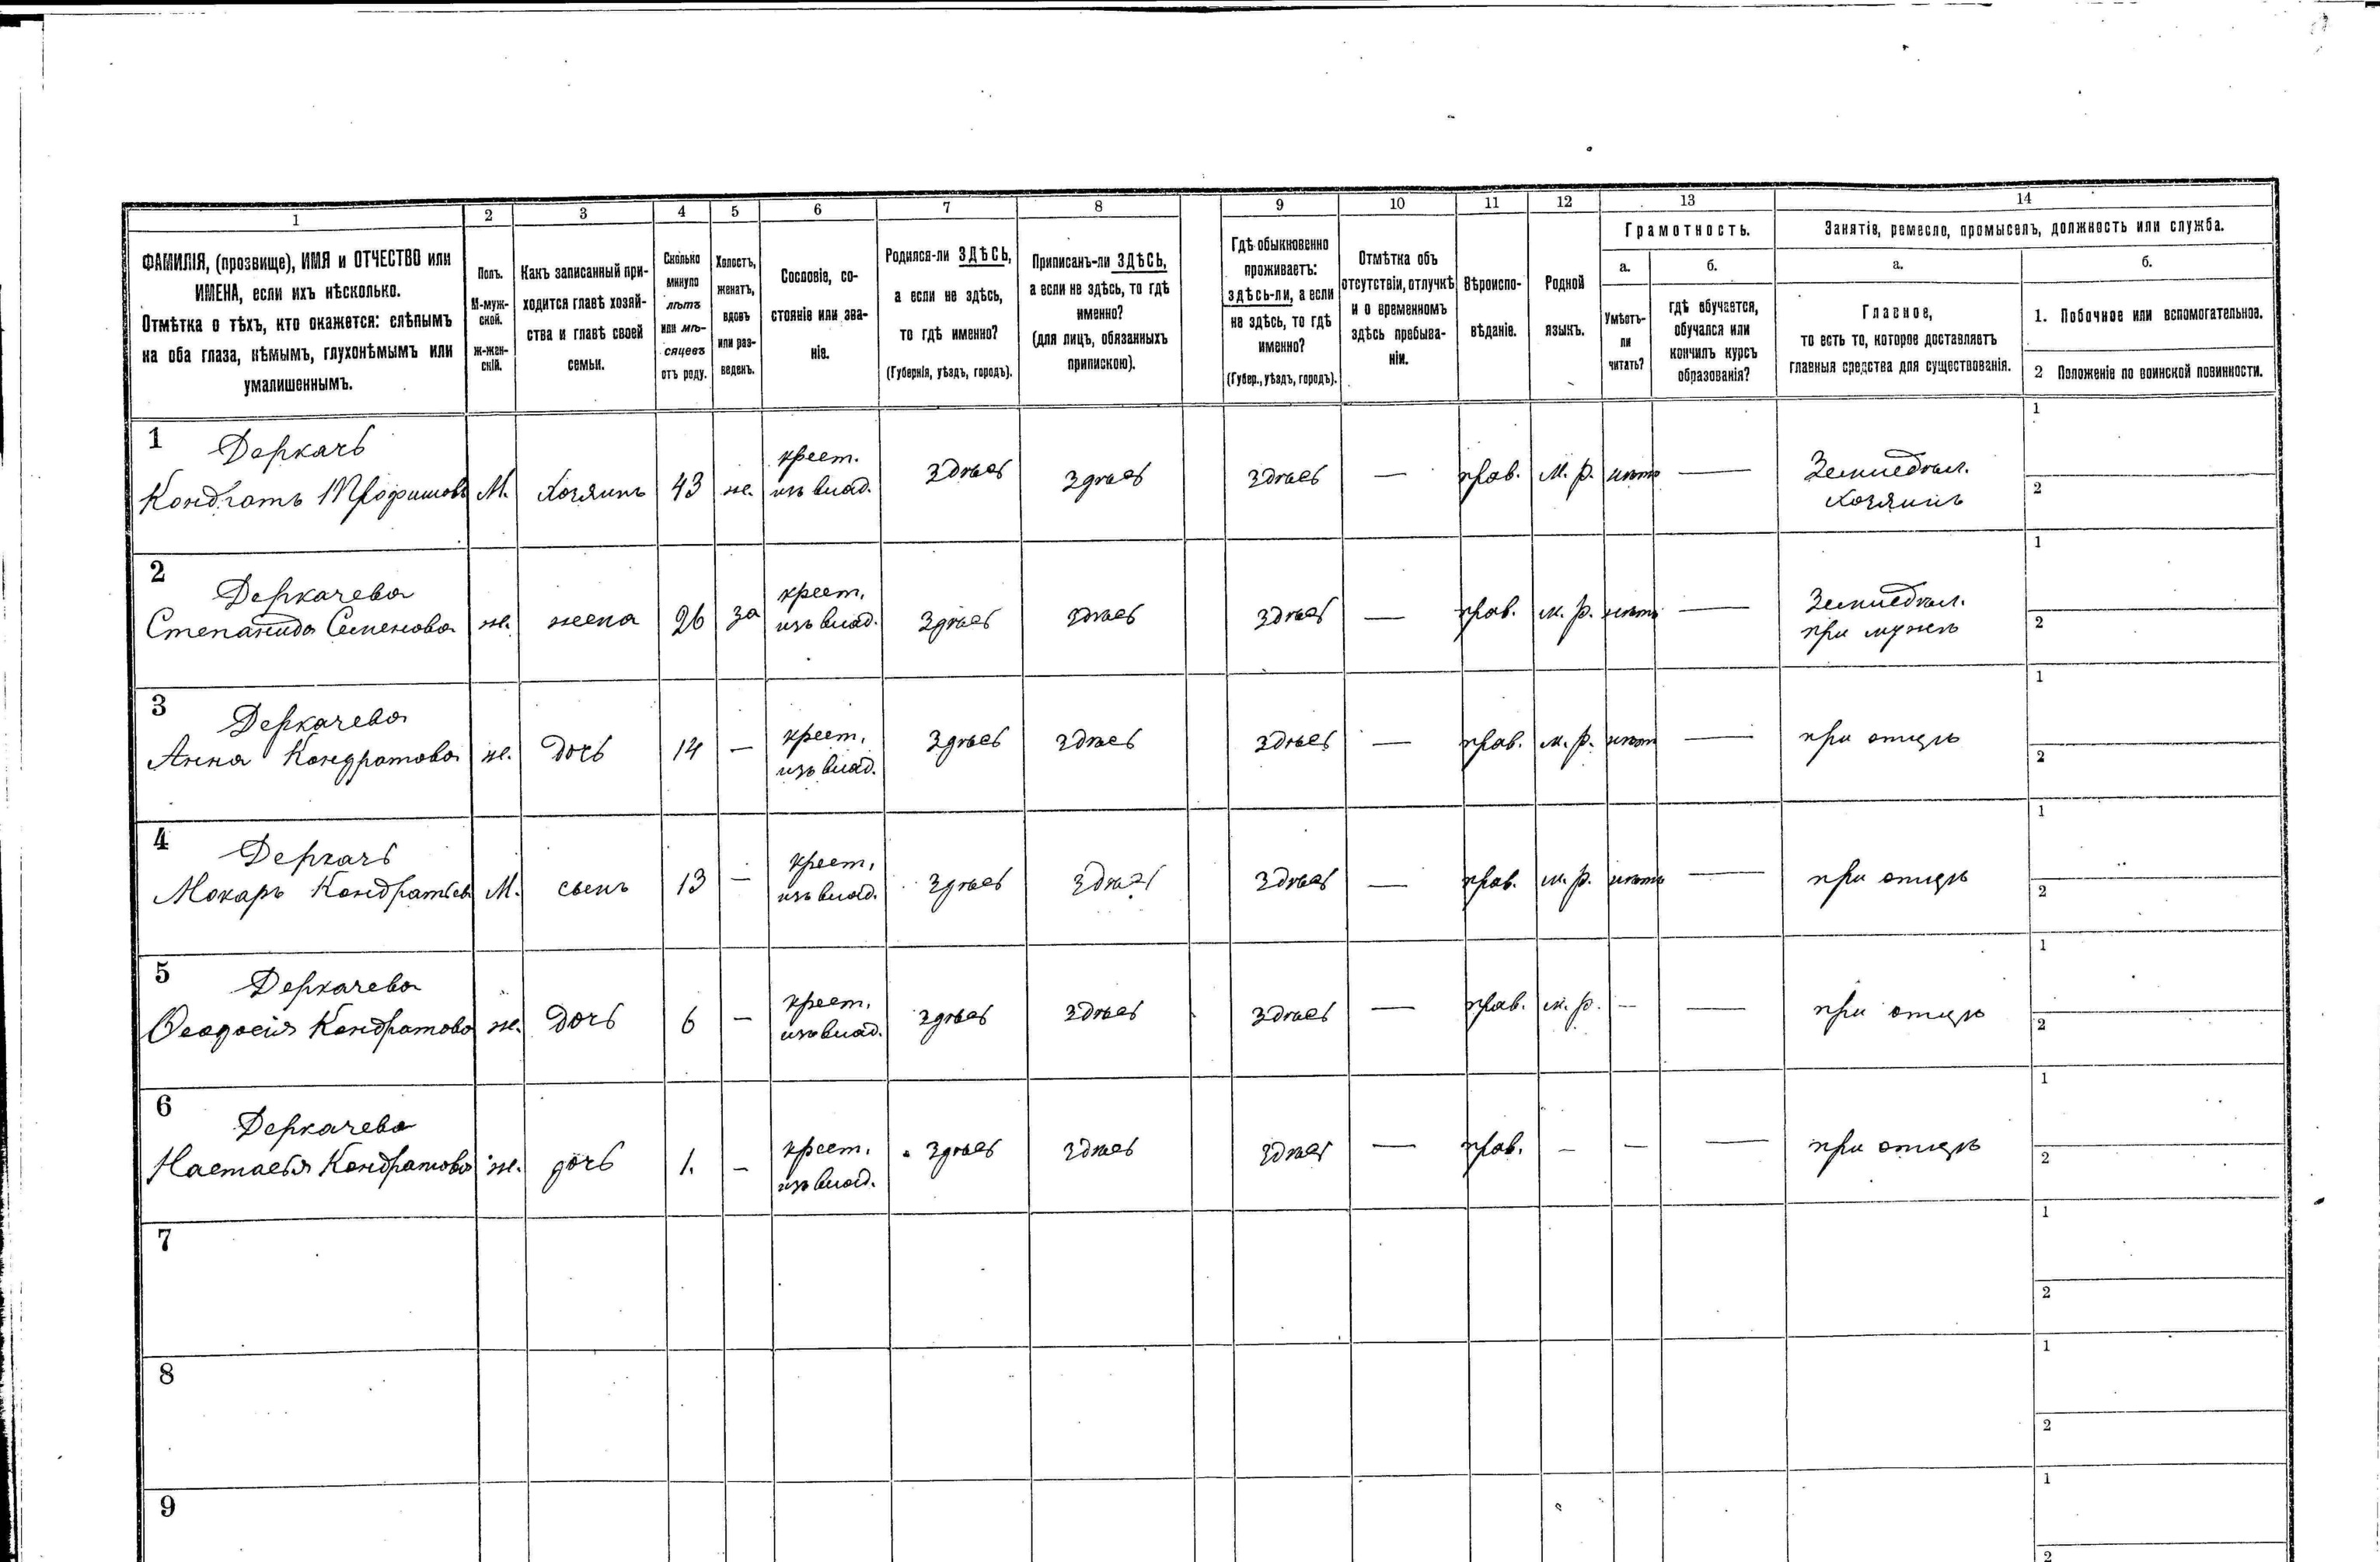 1 2 3 4 5 6 7 8 9 10 11 12 13 14
ФАМИЛІЯ, (прозвище), ИМЯ и ОТЧЕСТВО или
ИМЕНА, если ихъ нѣсколько.
Отмѣтка о тѣхъ, кто окажется: слѣпымъ
на оба глаза, нѣмымъ, глухонѣмымъ или
умалишеннымъ.
Полъ.
М-муж-
ской.
Ж-жен-
скій.
Какъ записанный при-
ходится главѣ хозяй-
ства и главѣ своей
семьи.
Сколько
минуло
лѣтъ
или мѣ-
сяцевъ
отъ роду.
Холостъ,
женатъ,
вдовъ
или раз-
веденъ.
Сословіе, со-
стояніе или зва-
ніе.
Родился-ли ЗДѢСЬ,
а если не здѣсь,
то гдѣ именно?
(Губернія, уѣздъ, городъ).
Приписанъ-ли ЗДѢСЬ,
а если не здѣсь, то гдѣ
именно?
(для лицъ, обязанныхъ
припискою).
Гдѣ обыкновенно
проживаетъ:
здѣсь-ли, а если
не здѣсь, то гдѣ
именно?
(Губер., уѣздъ, городъ).
Отмѣтка объ
отсутствіи, отлучкѣ
и о временномъ
здѣсь пребыва-
ніи.
Вѣроиспо-
вѣданіе.
Родной
языкъ.
Грамотность.
а.
Умѣетъ-
ли
читать?
б.
гдѣ обучается,
обучался или
кончилъ курсъ
образованія?
Занятіе, ремесло, промыселъ, должность или служба.
а.
Главное,
то есть то, которое доставляетъ
главныя средства для существованія.
б.
1. Побочное или вспомогательное.
2 Положеніе по воинской повинности.
1 Деркачь
Кондратъ Трофимовъ М. Хозяинъ 43 ж. крест.
изъ влад. здѣсь здѣсь здѣсь — прав. М. р. нѣтъ — Земледѣл.
хозяинъ
1
2
2 Деркачева
Степанида Семенова ж. жена 26 за крест.
изъ влад. здѣсь здѣсь здѣсь — прав. м. р. нѣтъ — Земледѣл.
при мужѣ
1
2
3 Деркачева
Анна Кондратова ж. дочь 14 — крест.
изъ влад. здѣсь здѣсь здѣсь — прав. м. р. нѣт — при отцѣ
1
2
4 Деркачь
Макаръ Кондратьев М. сынъ 13 — крест.
изъ влад. здѣсь здѣсь здѣсь — прав. м. р. нѣтъ — при отцѣ
1
2
5 Деркачева
Ѳеодосія Кондратова ж. дочь 6 — крест.
изъ влад. здѣсь здѣсь здѣсь — прав. м. р. — — при отцѣ
1
2
6 Деркачева
Настасья Кондратова ж. дочь 1. — крест.
изъ влад. здѣсь здѣсь здѣсь — прав. — — — при отцѣ
1
2
7
1
2
8
1
2
9
1
2